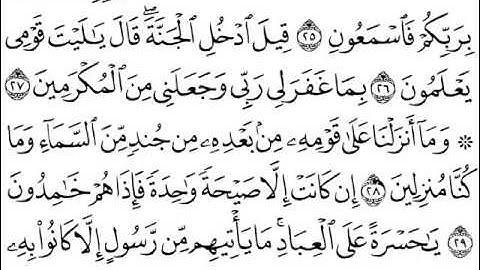 بِرَبِّكُمْ فَٱسْمَعُونِ ٢٥ قِيلَ ٱدْخُلِ ٱلْجَنَّةَ ۖ قَالَ يَٰلَيْتَ قَوْمِى
يَعْلَمُونَ ٢٦ بِمَا غَفَرَ لِى رَبِّى وَجَعَلَنِى مِنَ ٱلْمُكْرَمِينَ ٢٧
۞ وَمَآ أَنزَلْنَا عَلَىٰ قَوْمِهِۦ مِنۢ بَعْدِهِۦ مِن جُندٍ مِّنَ ٱلسَّمَآءِ وَمَا
كُنَّا مُنزِلِينَ ٢٨ إِن كَانَتْ إِلَّا صَيْحَةً وَٰحِدَةً فَإِذَا هُمْ خَٰمِدُونَ
٢٩ يَٰحَسْرَةً عَلَى ٱلْعِبَادِ ۚ مَا يَأْتِيهِم مِّن رَّسُولٍ إِلَّا كَانُوا۟ بِهِۦ